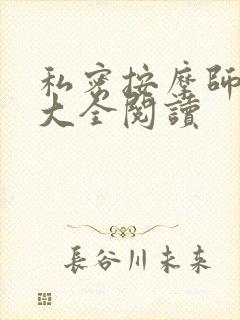 私密按摩師
大全閱讀
長谷川未来